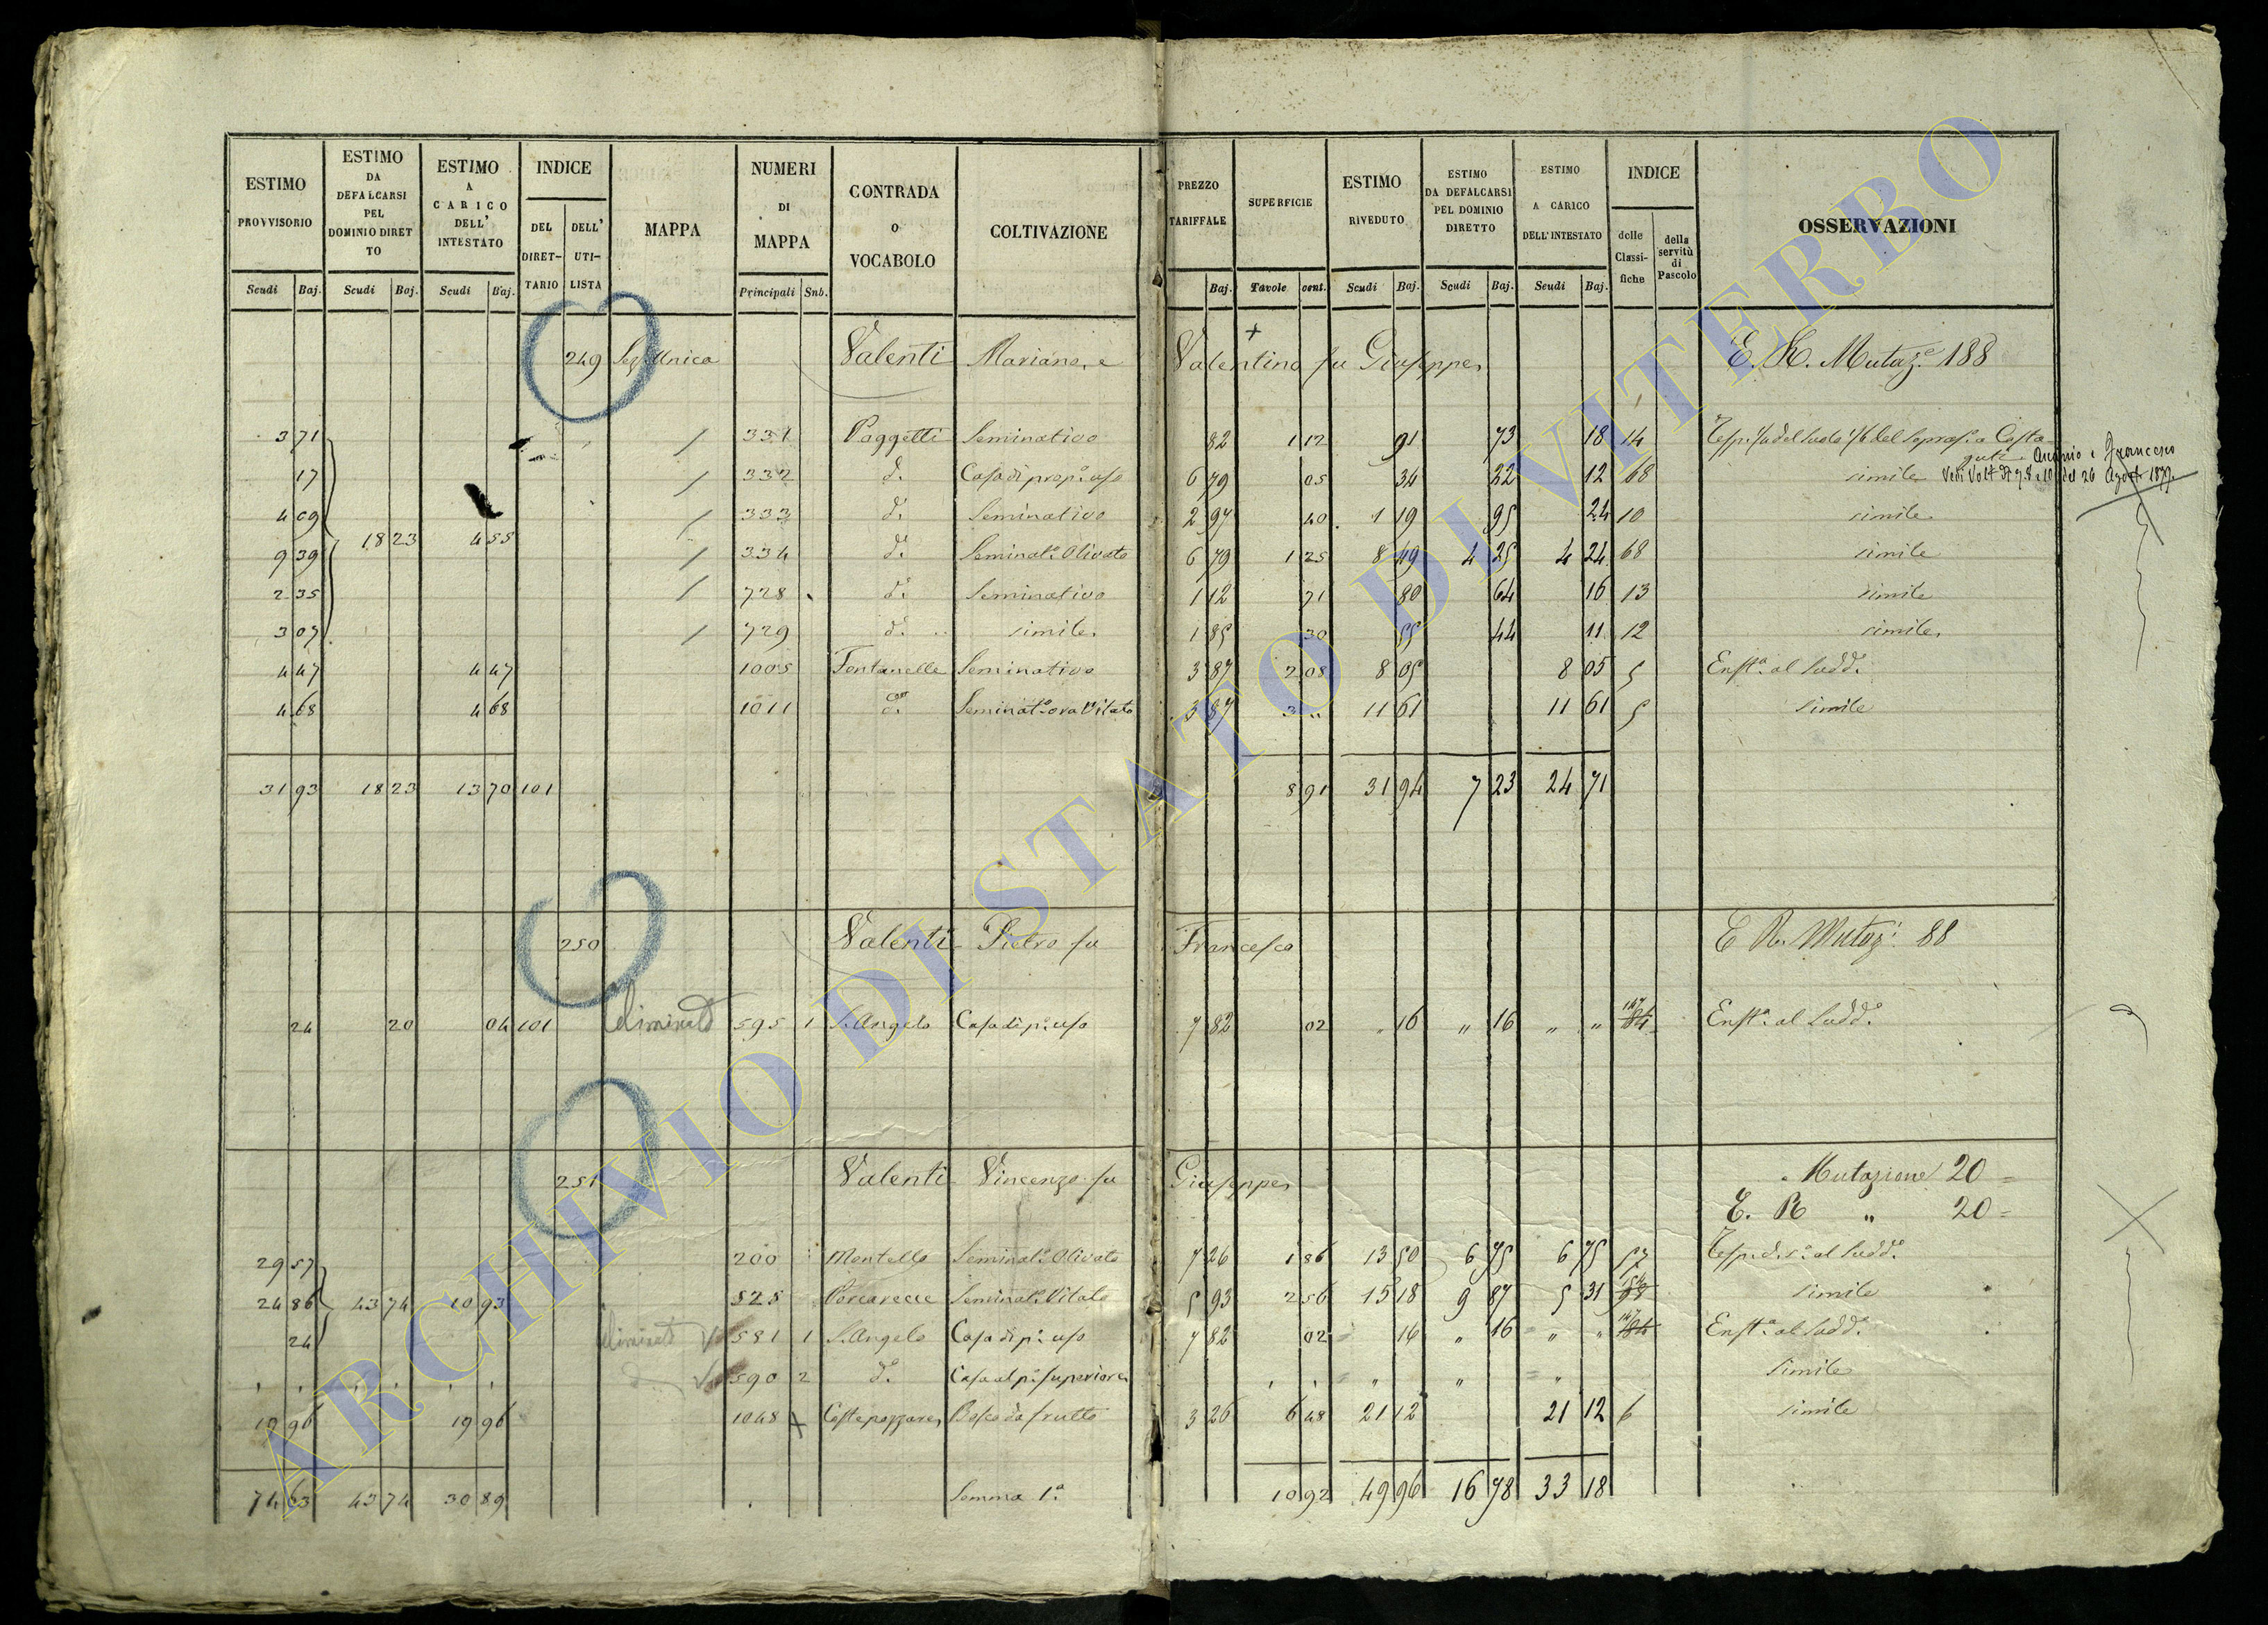 ESTIMO PROVVISORIO Scudi Baj.
ESTIMO DA DEFALCARSI PEL DOMINIO DIRETTO Scudi Baj.
ESTIMO A CARICO DELL' INTESTATO Scudi Baj.
INDICE DEL DIRETTARIO DELL' UTILISTA
MAPPA
NUMERI DI MAPPA Principali Snb.
CONTRADA O VOCABOLO
COLTIVAZIONE
PREZZO TARIFFALE Baj.
SUPERFICIE Tavole cent.
ESTIMO RIVEDUTO Scudi Baj.
ESTIMO DA DEFALCARSI PEL DOMINIO DIRETTO Scudi Baj.
ESTIMO A CARICO DELL' INTESTATO Scudi Baj.
INDICE delle Classifiche della servitù di Pascolo
OSSERVAZIONI
249 Sez. Unica Valenti Mariano, e Valentino fu Giuseppe, E. R. Mutaz.e 188
3 71 331 Poggetti Seminativo 82 1 12 91 73 18 14
17 332 d.o Casa di prop.o uso 6 79 05 34 22 12 68 simile
Ascanio e Francesco
Vedi Volt. 26 Agosto 1877.
4 09 333 d.o Seminativo 2 97 40 1 19 95 24 10 simile
18 23 4 55
9 39 334 d.o Seminat.o Olivato 6 79 1 25 8 49 4 25 4 24 68 simile
2 35 728 d.o Seminativo 1 12 71 80 64 16 13 simile
3 07 729 d.o simile 1 85 30 55 44 11 12 simile
4 47 4 47 1005 Fontanelle Seminativo 3 87 2 08 8 05 8 05 5 Enft.a al Sudd.o
4 68 4 68 1011 d.o Seminat.o ora Vitato 3 87 3 " 11 61 11 61 5 simile
31 93 18 23 13 70 101 8 91 31 94 7 23 24 71
250 Valenti Pietro fu Francesco E R. Mutaz.i 88
24 20 04 101 eliminato 595 1 S. Angelo Casa di p.o uso 7 82 02 " 16 " 16 " " 147 84 Enft.a al Sudd.o
251 Valenti Vincenzo fu Giuseppe, Mutazione 20 =
E. R " 20 =
29 57 200 Montello Seminat.o Olivato 7 26 1 86 13 50 6 75 6 75 57 al Sudd.o
24 86 43 74 10 93 525 Porcarecce Seminat.o Vitato 5 93 2 56 15 18 9 87 5 31 simile
24 eliminato 581 1 S. Angelo Casa di p.o uso 7 82 02 16 " 16 " " 147 84 Enft.a al Sudd.o
590 2 d.o Casa al p.o superiore simile
19 96 19 96 1048 Costepozzare Bosco da frutto 3 26 6 48 21 12 21 12 6 simile
74 63 43 74 30 89 Somma 1.a 10 92 49 96 16 78 33 18
ARCHIVIO DI STATO DI VITERBO